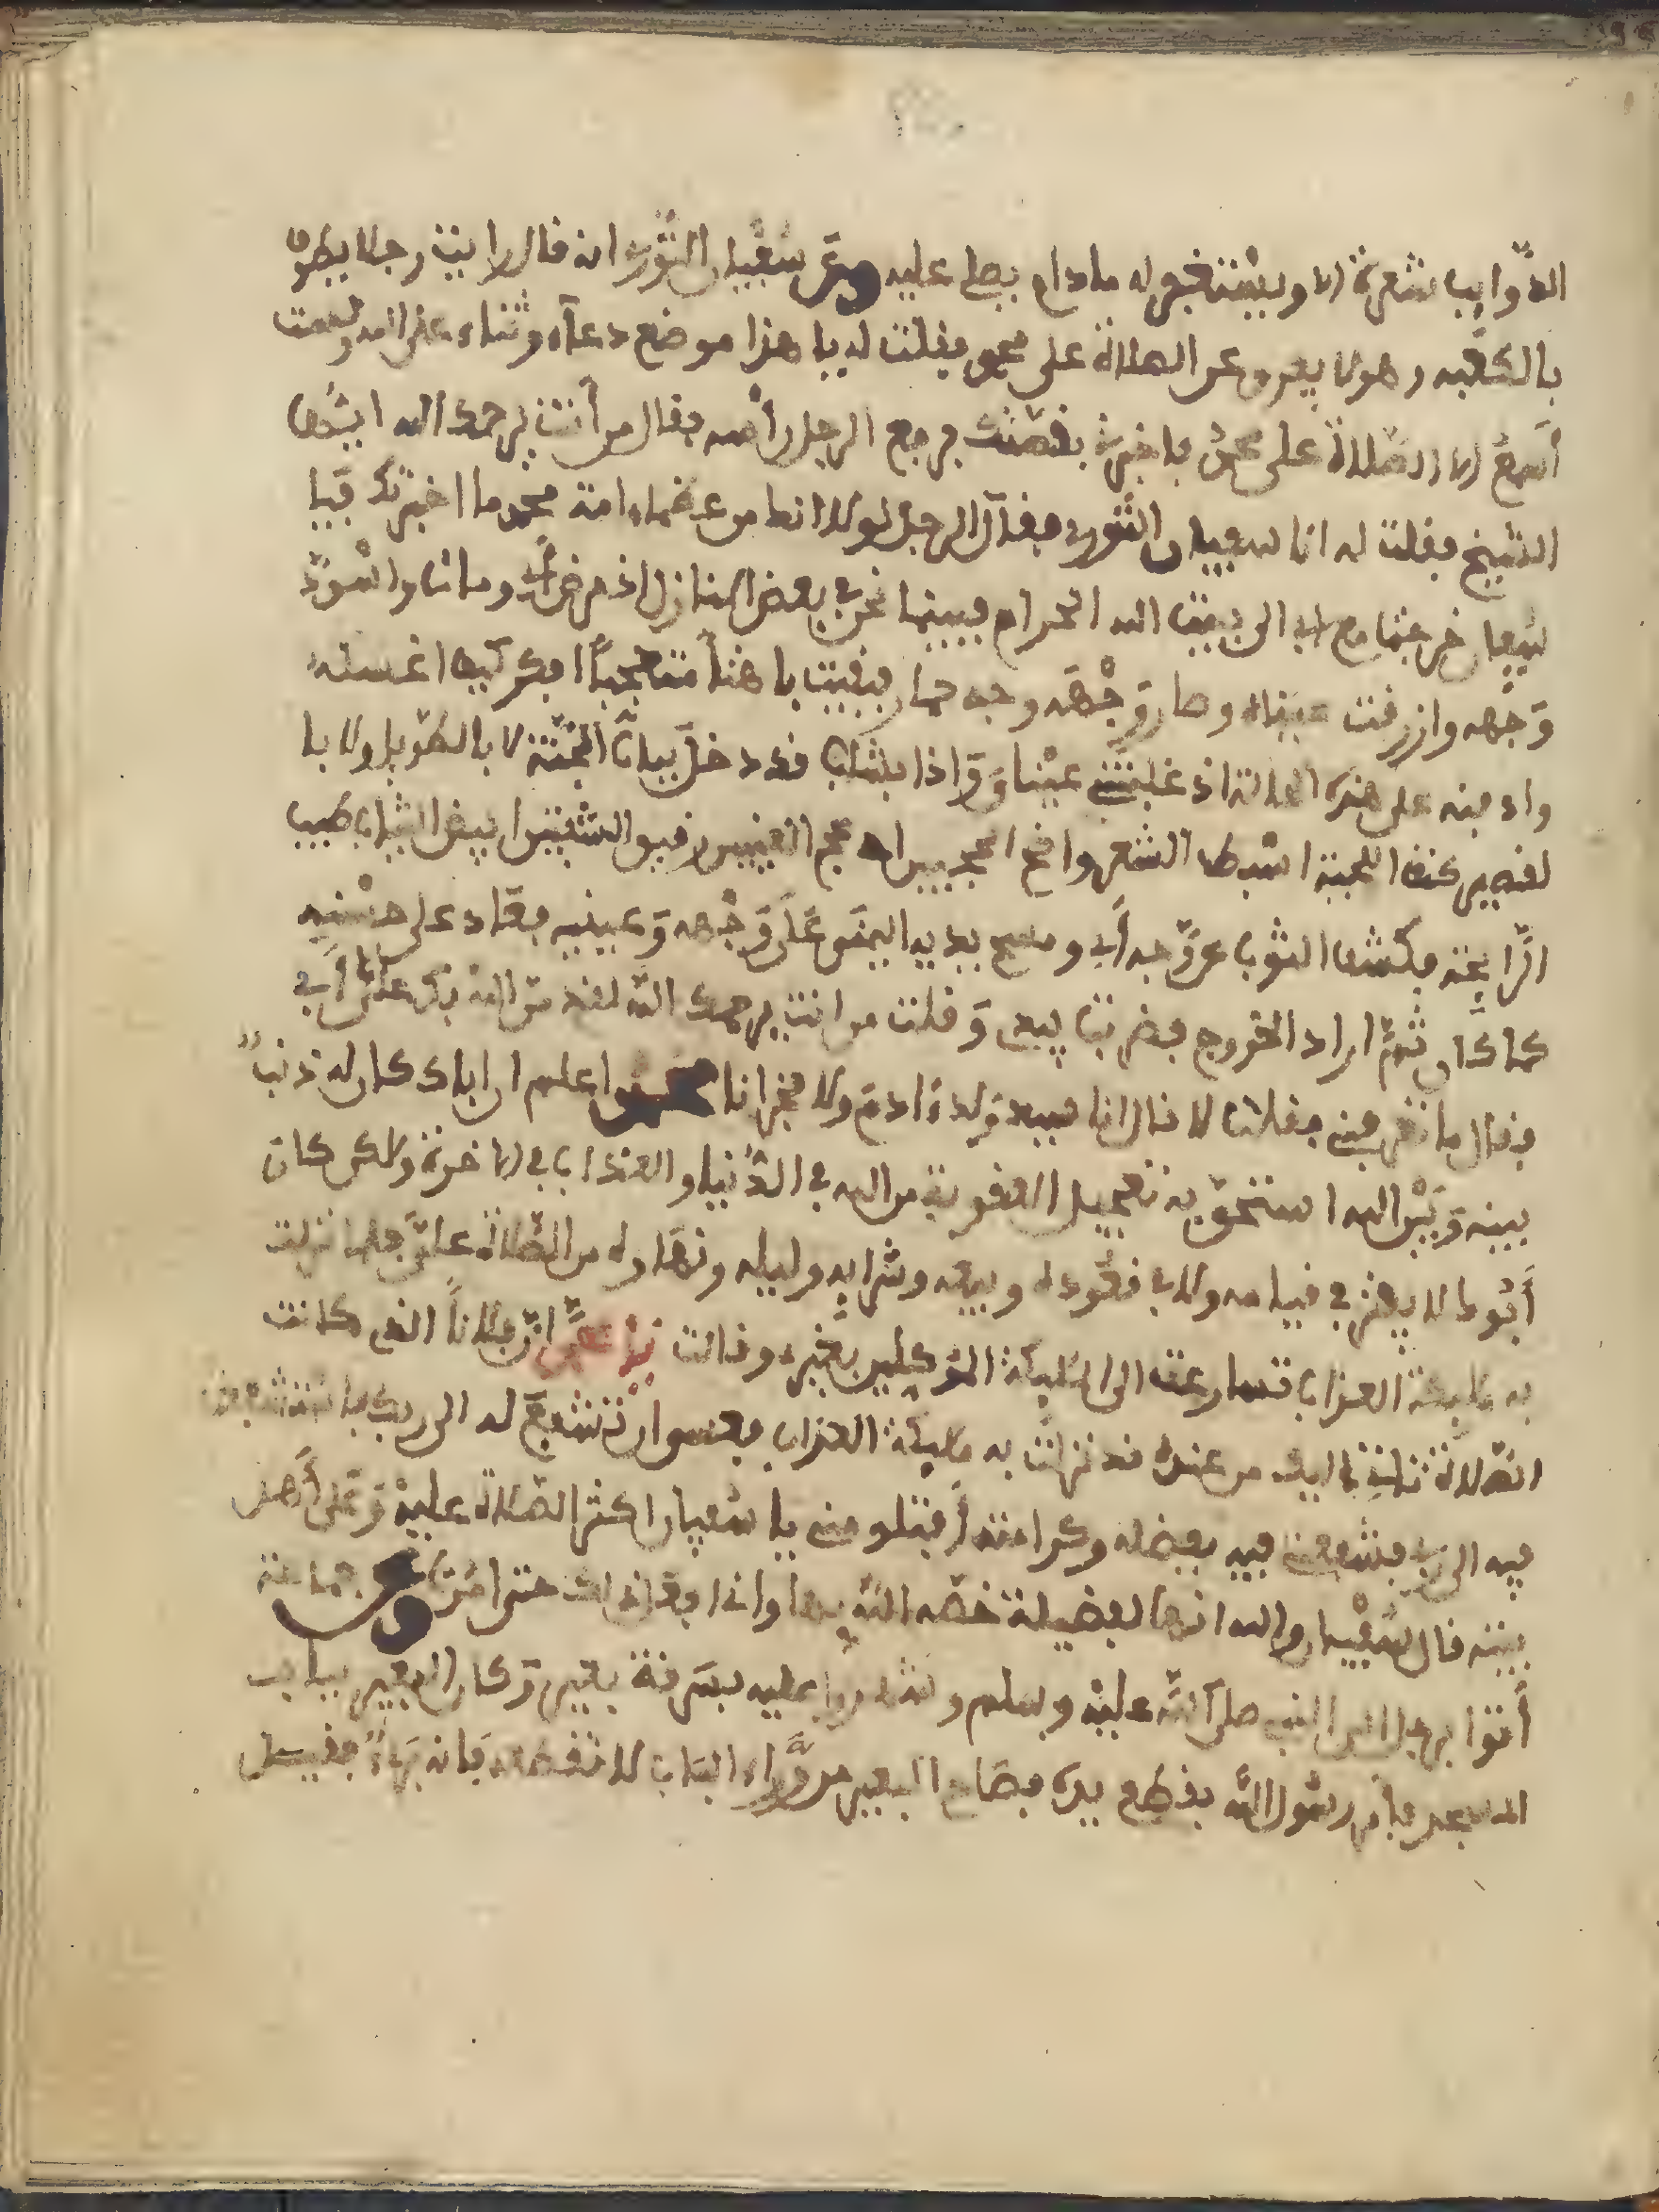 الذوايب شعرة الا ويستغفر له مادام يصلي عليه وعن سفيان الثوري انه قال رايت رجلا يطوف
بالكعبه وهو لا يعرف غير الصلاة على محمد فقلت له يا هذا موضع دعاء وثناء على الله ولست
أسمع الا الصلاة على محمد فاخبرني بقصتك فرجع الرجل رأسه فقال من أنت يرحمك الله ايها
الشيخ فقلت له انا سفيان الثوري فقال الرجل لولا انك من عظماء امة محمد ما اخبرتك فيا
سفيان خرجنا مع ابي الى بيت الله الحرام فبينما نحن في بعض المنازل اذ مرض أبي ومات واسودّ
وَجْهه وازرقت عيناه وصار وَجْهَه وجه حمار فبقيت يا هذا متعجباً افكر كيف اغسله
وادفنه على هذه الحالة اذ غلبتني عينا وَاذا بشاب قد دخل بباب الخيمة لا بالطويل ولا با
لقصير كث اللحية اسبط الشعر واضح الحجبين ادعج العينين رقيق الشفتين ابيض الثياب طيب
الرّايحة فكشف الثوب عن وجه أبي ومسح بيديه اليمنى عَلَى وَجْهه وَعينيه فعاد على حسنه
كما كان ثمّ اراد الخروج فضربت بيدي وَقلت من انت يرحمك الله لقد منّ الله بك علىّ أبي
فقال ما تعرفني فقلت لا قال انا سيد وَلد ءادم ولا فخر انا محمد واعلم ان اباك كان له ذنبٌ
بينه وَبَيْن الله استحق به تعجيل العقوبة من الله في الدُّنيا والعذاب في الاخرة ولكن كان
أبوك لا يفتر في قيامه ولا في قعوده وبيعه وشرابه وليله ونهاره من الصَّلاة علىَّ فلما نزلت
به مليكة العذاب تسارعت الى المليكة الموكلين بقبره وقالت يا محمَّد انّ فلاناً الذي كانت
الصّلاة تاتينا اليك من عنده قد نزلت به مليكة العذاب فعسى ان تشفع له الى ربك فاستشفعت
فيه الى ربي فشفعني فيه بفضله وكرامته أفتلومني يا سفيان اكثر الصّلاة عليه وَعلى أهل
بيته قال سفْيان والله انها لفضيلة خصّه الله بها وانا افعل ذلك حتى امُوت وعن جماعة
أتوا برجل الى النبي صلى الله عليه وسلم وشهدوا عليه بسرقة بعير وَكان البعير بباب
المسجد فأمر رسول الله بقطع يده فصاح البعير من وراء الباب لا تقطعه فانه برىءٌ فقيل